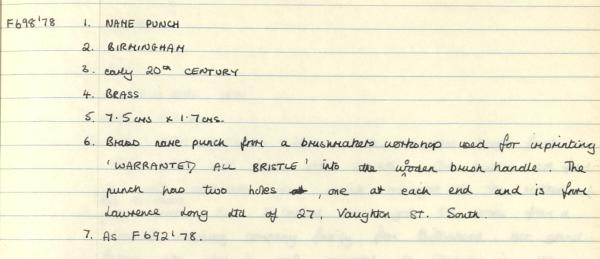 F698'78 1. NAME PUNCH
2. BIRMINGHAM
3. early 20th CENTURY
4. BRASS
5. 7.5cms x 1.7cms.
6. Brass name punch from a brushmakers workshop used for imprinting
'WARRANTED ALL BRISTLE' into the wooden brush handle. The
punch has two holes, one at each end and is from
Lawrence Long Ltd of 27, Vaughton St. South.
7. As F692'78.